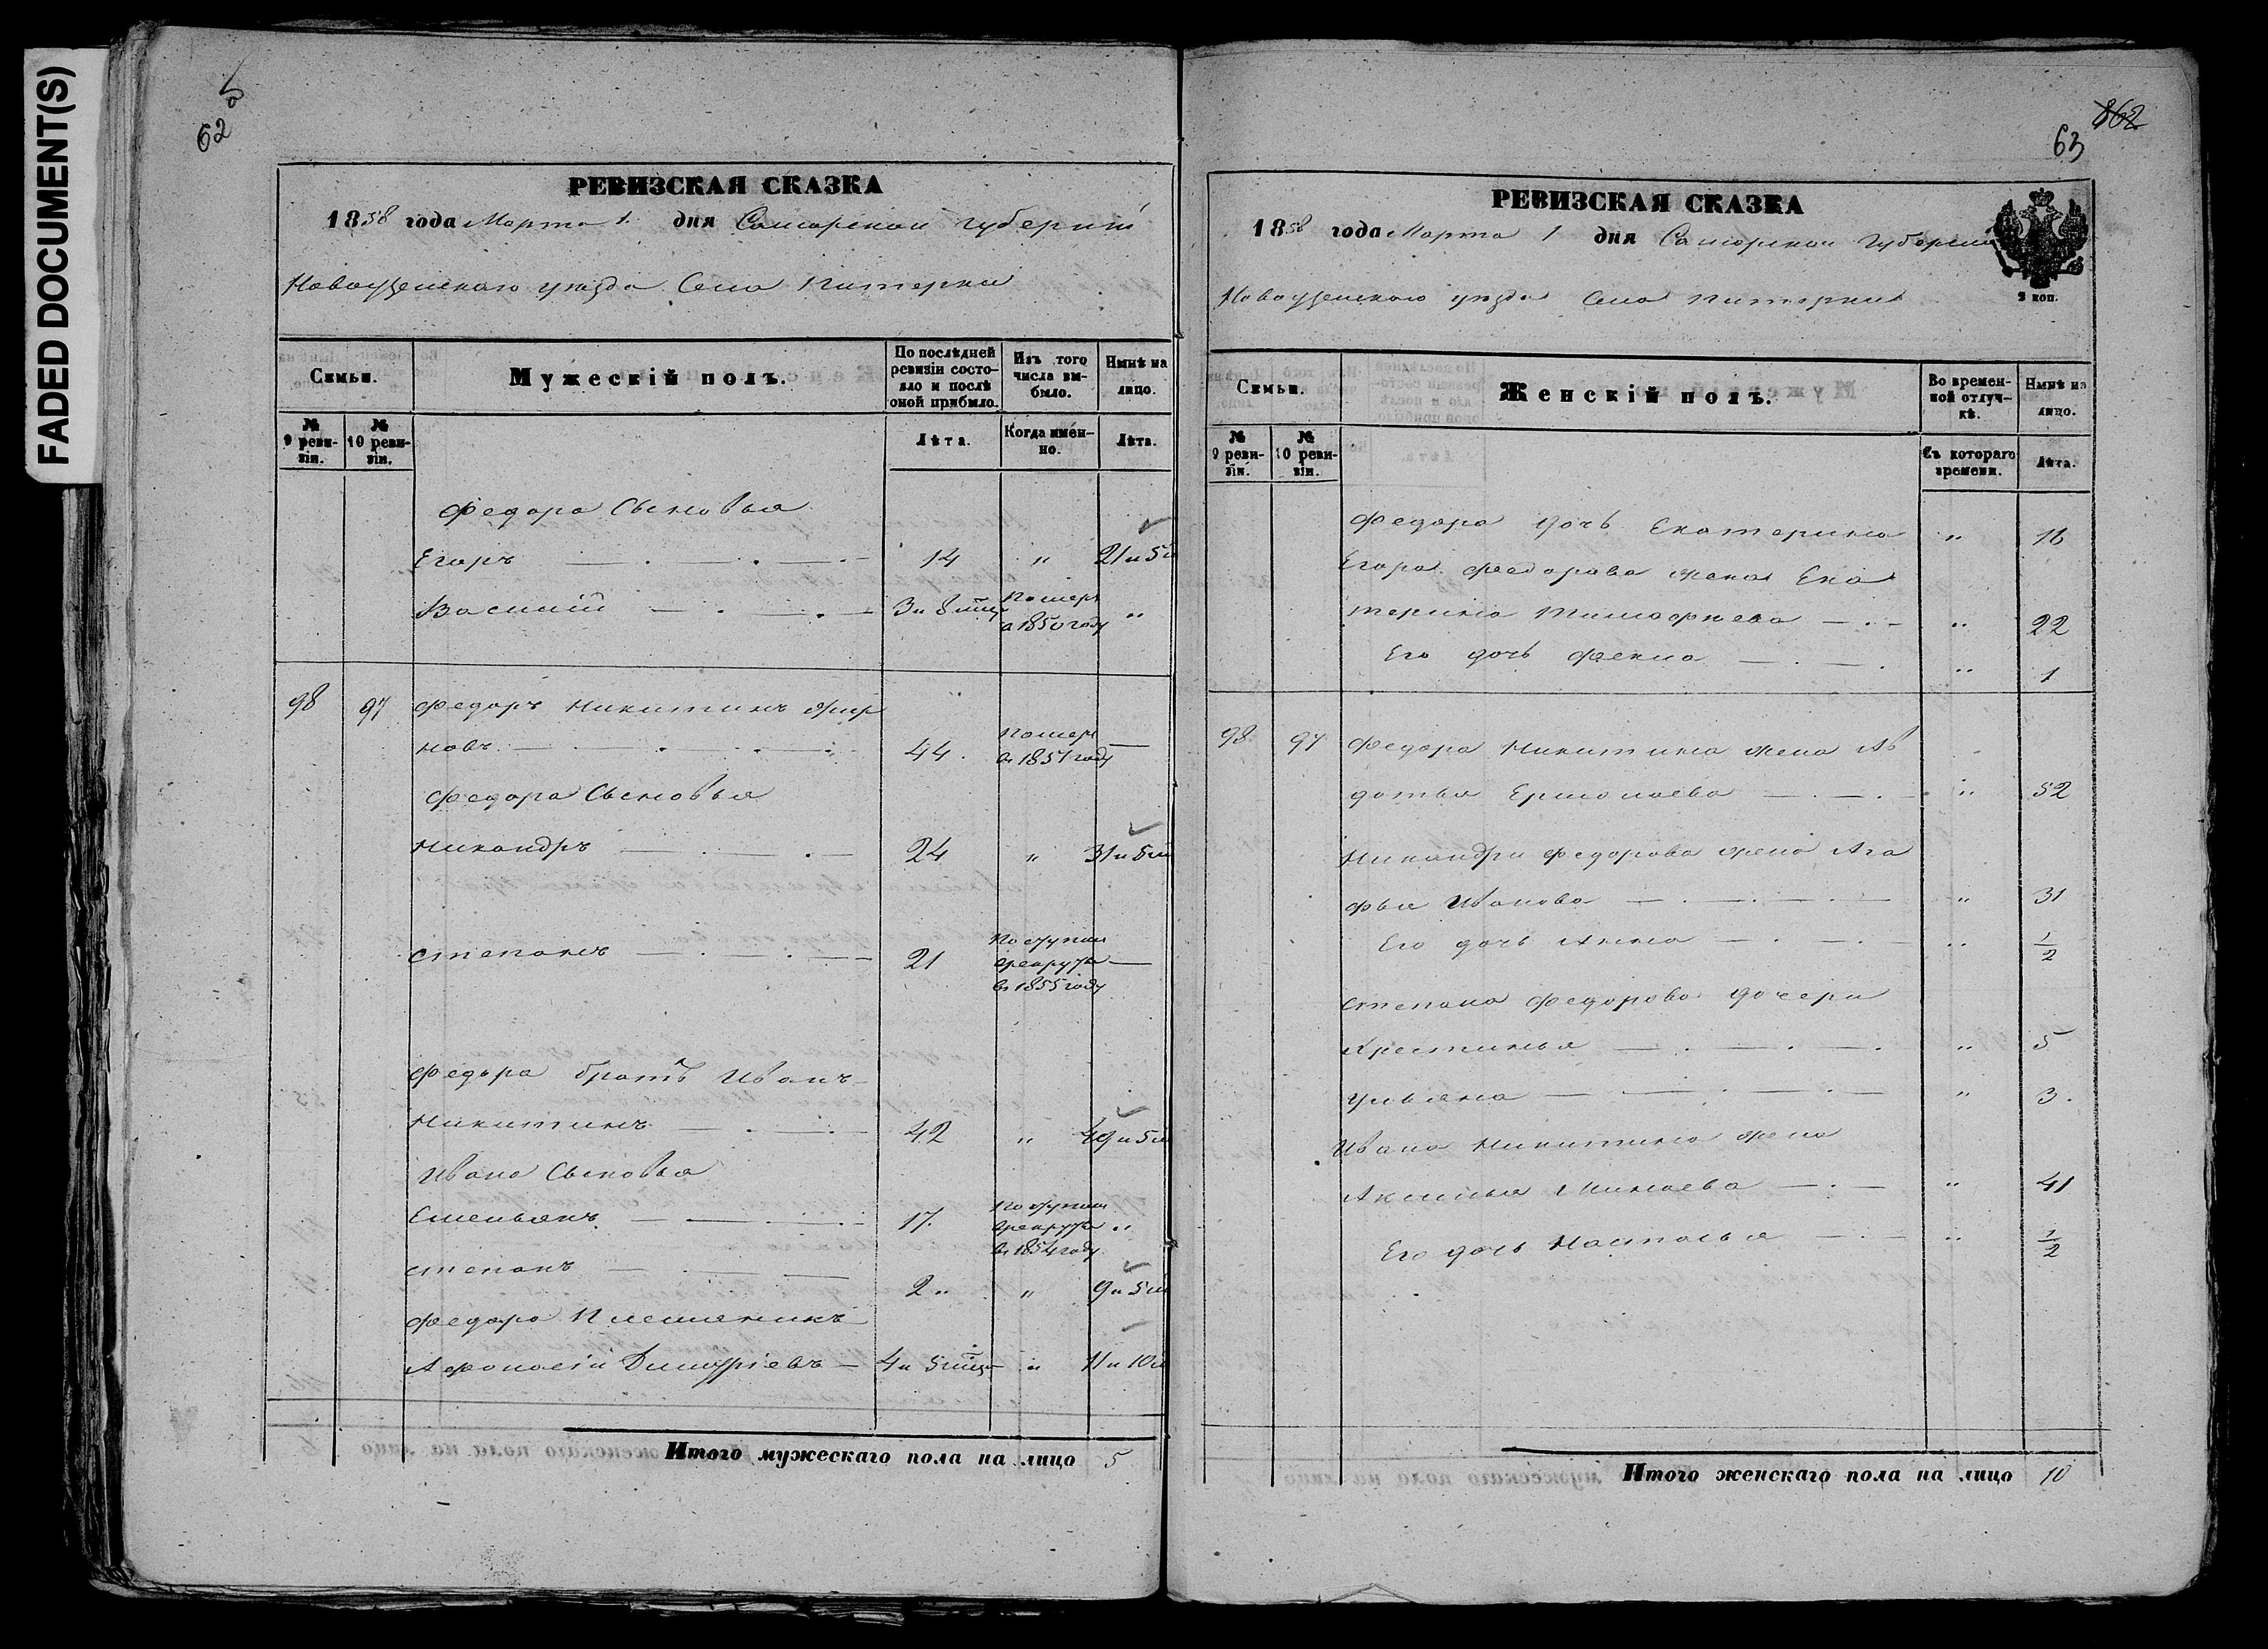 FADED DOCUMENT(S)
62
РЕВИЗСКАЯ СКАЗКА
1858 года Марта 1 дня Самарской губернии
Новоузенскаго уезда Села Питерки
Семьи.
№ 9 ревизіи.
№ 10 ревизіи.
Мужескій полъ.
По послѣдней ревизіи состояло и послѣ оной прибыло.
Лѣта.
Изъ того числа выбыло.
Когда именно.
Нынѣ на лицо.
Лѣта.
Федора Сыновья
Егоръ 14 " 21 и 5 м
Василий 3 и 8 мѣц Померъ в 1850 году "
98 97 Федоръ Никитинъ
новъ 44 Помер в 1851 году —
Федора Сыновья
Никандръ 24 " 31 и 5 м
Степанъ 21 Поступил в рекруты в 1855 году —
Федора братъ Иванъ
Никитинъ 42 " 49 и 5 м
Ивана Сыновья
Емельянъ 17 Поступил в рекруты в 1854 году "
Степанъ 2 " " 9 и 5 м
Федора Племяникъ
Афонасій Димитріевъ 4 и 5 мѣц " 11 и 10 м
Итого мужескаго пола на лицо 5
862
63
РЕВИЗСКАЯ СКАЗКА
1858 года Марта 1 дня Самарской Губернии
Новоузенскаго уезда Села Питерки
2 коп.
Семьи.
№ 9 ревизіи.
№ 10 ревизіи.
Женскій полъ.
Во временной отлучкѣ.
Съ котораго времени.
Нынѣ на лицо.
Лѣта.
Федора дочь Екатерина " 16
Егора Федорова жена Ека
терина Тимофеева " 22
Его дочь Фекла " 1
98 97 Федора Никитина жена Ав
дотья Ермолаева " 52
Никандры Федорова жена Ага
фья Иванова " 31
Его дочь Анна " 1/2
Степана Федорова дочери
Крестинья " 5
Ульяна " 3
Ивана Никитина жена
Аксинья Минаева " 41
Его дочь Настасья " 1/2
Итого женскаго пола на лицо 10